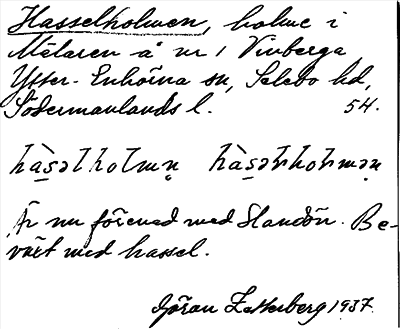 Hasselholmen, holme i
Mälaren å nr 1 Vinberga
Ytter-Enhörna sn, Selebo hd,
Södermanlands l. 54.
hàs̠əlholmn̥ hàs̠əɫhoɫmən̥
Är nu förenad med Slandön. Be-
växt med hassel.
Göran Zetterberg 1937.